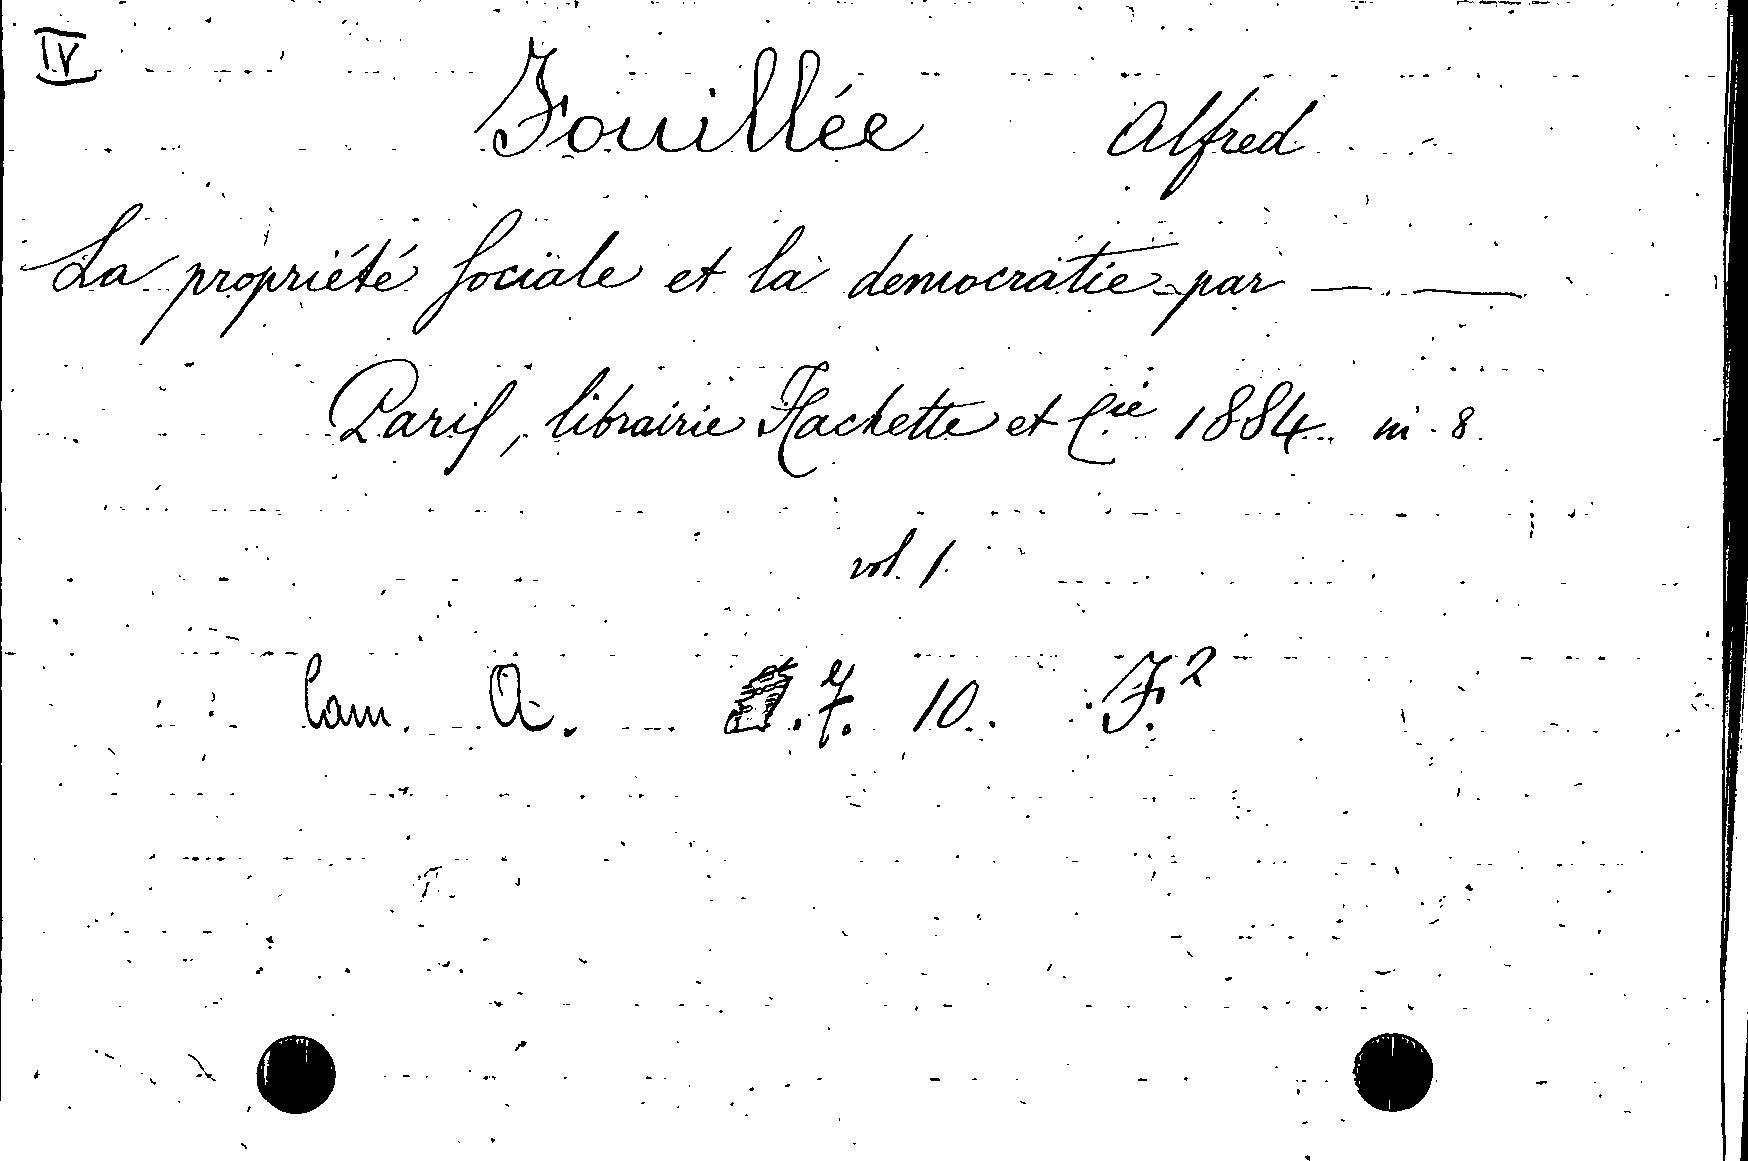 IV
Fouillée Alfred
La propriété sociale et la democratie par — . —
Paris, librairie Hachette et Cie 1884 in-8.
vol. 1.
Cam. A. . 7. 10. F.2